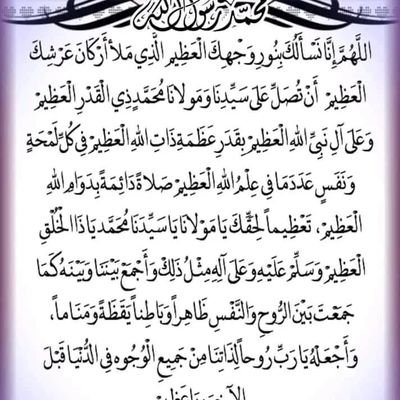 محمد رسول الله
اللَّهُمَّ إِنَّا نَسْأَلُكَ بِنُورِ وَجْهِكَ الْعَظِيمِ الَّذِي مَلَأَ أَرْكَانَ عَرْشِكَ
الْعَظِيمِ أَنْ تُصَلِّ عَلَى سَيِّدِنَا وَمَوْلَانَا مُحَمَّدٍ ذِي الْقَدْرِ الْعَظِيمِ
وَعَلَى آلِ نَبِيِّ اللهِ الْعَظِيمِ بِقَدَرِ عَظَمَةِ ذَاتِ اللهِ الْعَظِيمِ فِي كُلِّ لَمْحَةٍ
وَنَفَسٍ عَدَدَ مَا فِي عِلْمِ اللهِ الْعَظِيمِ صَلَاةً دَائِمَةً بِدَوَامِ اللهِ
الْعَظِيمِ، تَعْظِيماً لِحَقِّكَ يَا مَوْلَانَا يَا سَيِّدَنَا مُحَمَّد يَا ذَا الْخُلُقِ
الْعَظِيمِ وَسَلِّمْ عَلَيْهِ وَعَلَى آلِهِ مِثْلَ ذَلِكَ وَأَجْمَعْ بَيْنَنَا وَبَيْنَهُ كَمَا
جَمَعْتَ بَيْنَ الرُّوحِ وَالنَّفْسِ ظَاهِراً وَبَاطِناً يَقَظَةً وَمَنَاماً،
وَأَجْعَلْهُ يَا رَبِّ رُوحاً لِذَاتِنَا مِنْ جَمِيعِ الْوُجُوهِ فِي الدُّنْيَا قَبْلَ